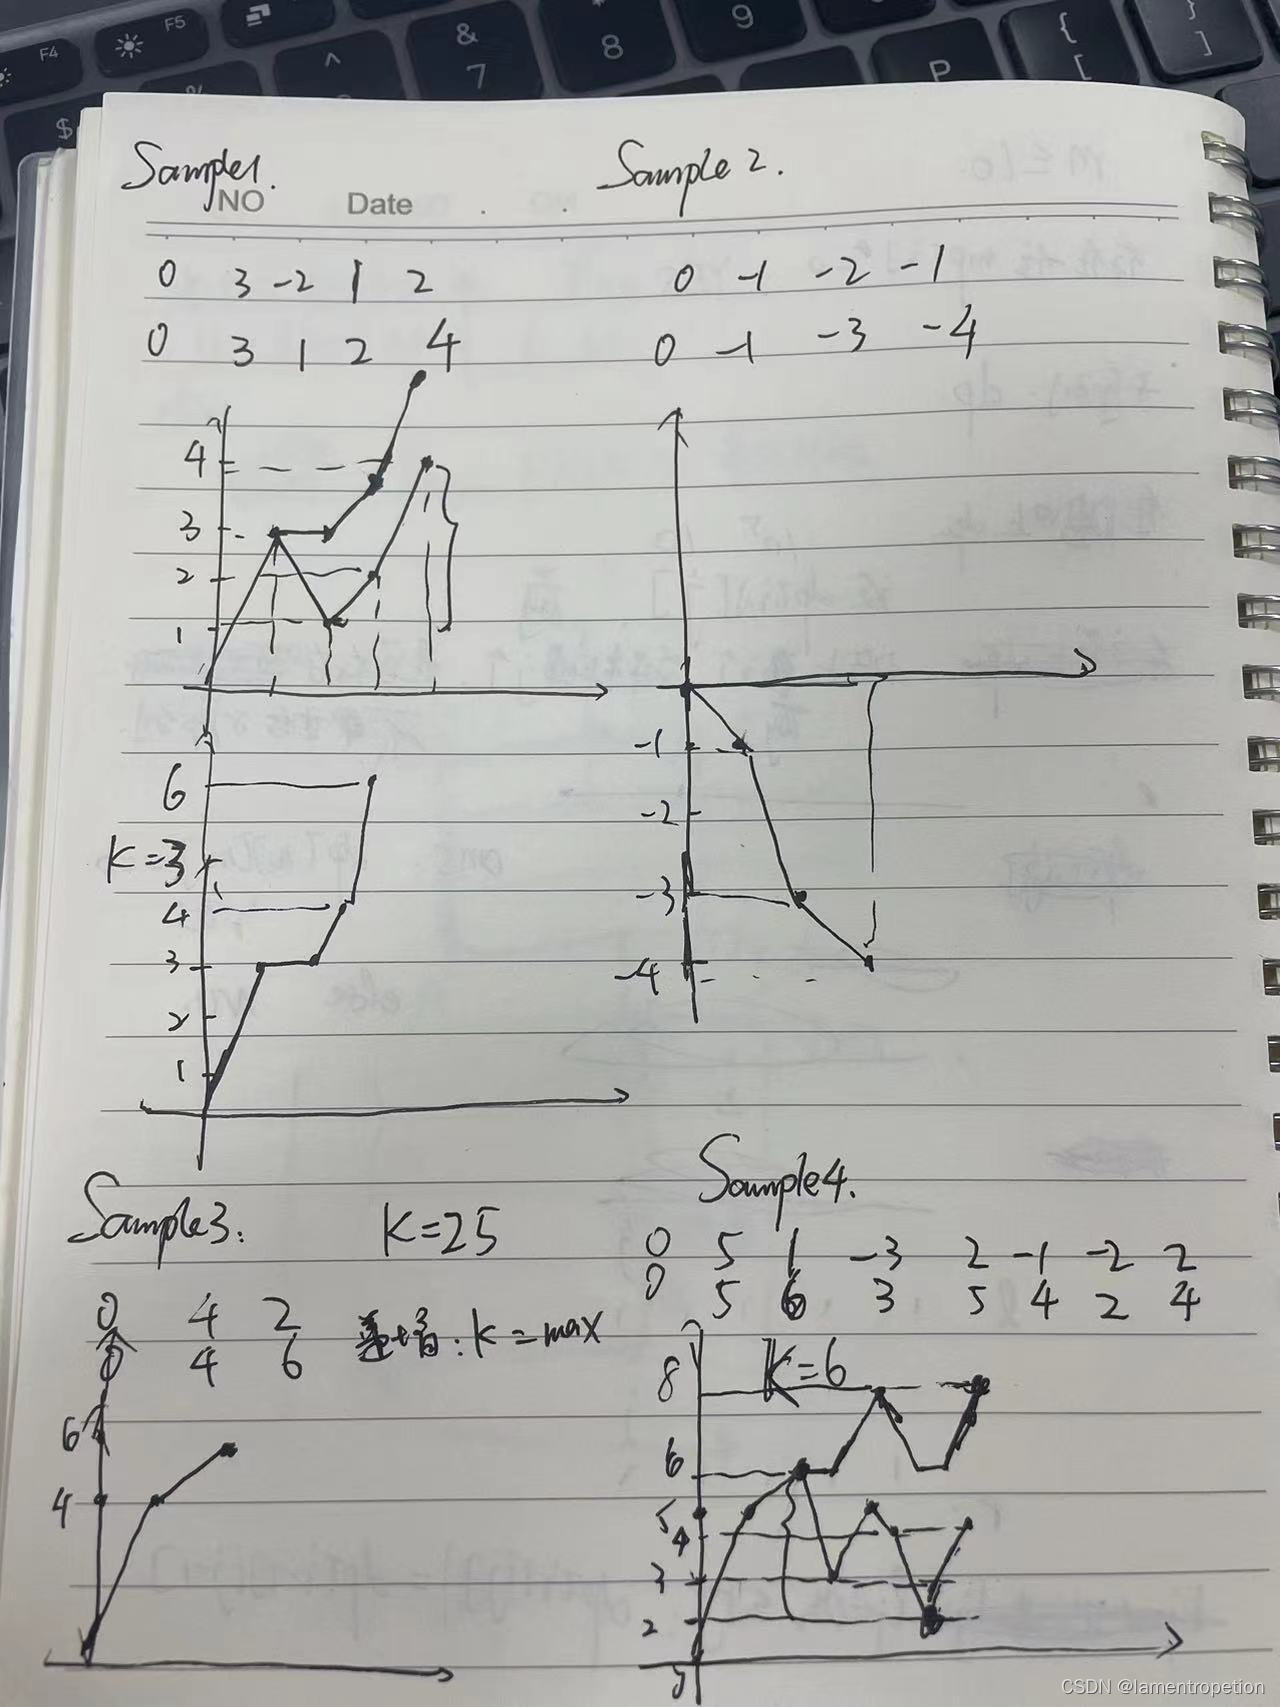 F4
F5
&
7
*
8
9
^
%
$
P
{
[
}
]
Sample1.
NO
Date
0 3 -2 1 2
0 3 1 2 4
4
3
2
1
6
K=3
4
3
2
1
Sample 2.
0 -1 -2 -1
0 -1 -3 -4
-1
-2
-3
-4
Sample3:
K=25
0 4 2
0 4 6
K=max
6
4
Sample4.
0 5 1 -3 2 -1 -2 2
0 5 6 3 5 4 2 4
K=6
8
6
5
4
3
2
CSDN @lamentropetion